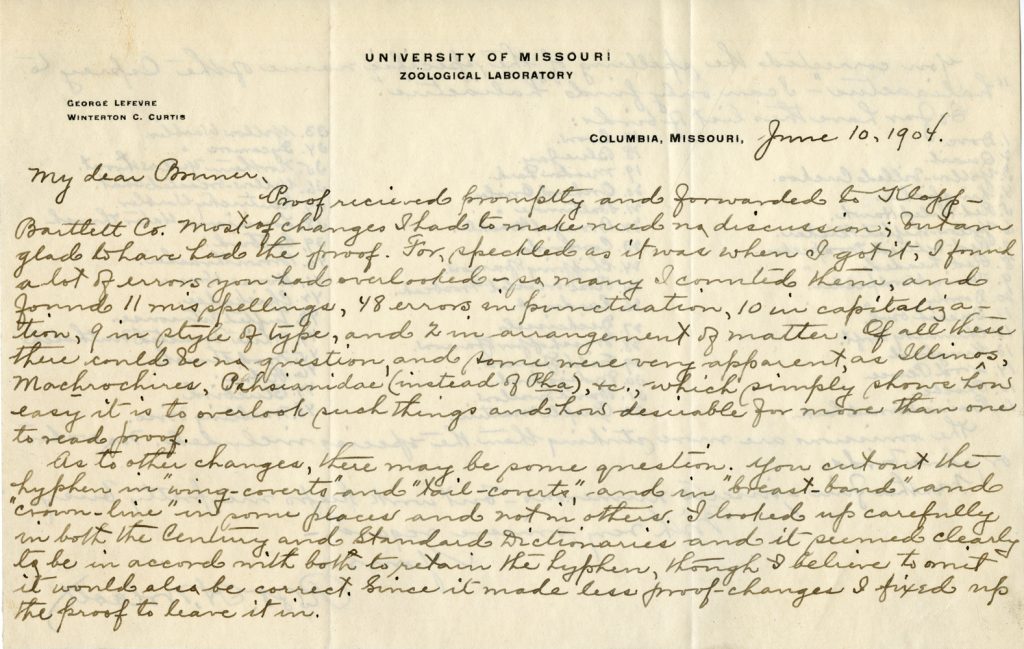 UNIVERSITY OF MISSOURI
ZOÖLOGICAL LABORATORY
GEORGE LEFEVRE
WINTERTON C. CURTIS
COLUMBIA, MISSOURI, June 10, 1904.
My dear Bruner,
Proof recieved promptly and forwarded to Klopp-
Bartlett Co. Most of changes I had to make need no discussion; but am
glad to have had the proof. For, speckled as it was when I got it, I found
a lot of errors you had overlooked: so many I counted them, and
found 11 misspellings, 48 errors in punctuation, 10 in capitaliza-
tion, 9 in style of type, and 2 in arrangement of matter. Of all these
there could be no question, and some were very apparent, as Illinos,
Machrochires, Pahsianidae (instead of Pha), &c., which simply shows how
easy it is to overlook such things and how desirable for more than one
to read proof.
As to other changes, there may be some question. You cut out the
hyphen in "wing-coverts" and "tail-coverts," and in "breast-band" and
"crown-line" in some places and not in others. I looked up carefully
in both the Century and Standard Dictionaries and it seemed clearly
to be in accord with both to retain the hyphen, though I believe to omit
it would also be correct. Since it made less proof-changes I fixed up
the proof to leave it in.